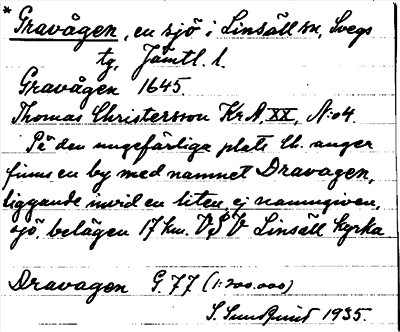 * Gravågen, en sjö i Linsäll sn, Svegs
tg, Jämtl. l.
Gravågen 1645.
Thomas Christersson Kr. A, XX, N:o 4.
På den ungefärliga plats Ch. anger
finns en by med namnet Dravagen,
liggande invid en liten, ej namngiven,
sjö, belägen 17 km. VSV Linsäll kyrka
Dravagen G. 77 (1:200.000)
S. Sundquist 1935.